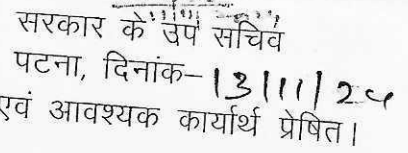 सरकार के उप सचिव
पटना, दिनांक–13/11/24
एवं आवश्यक कार्यार्थ प्रेषित।